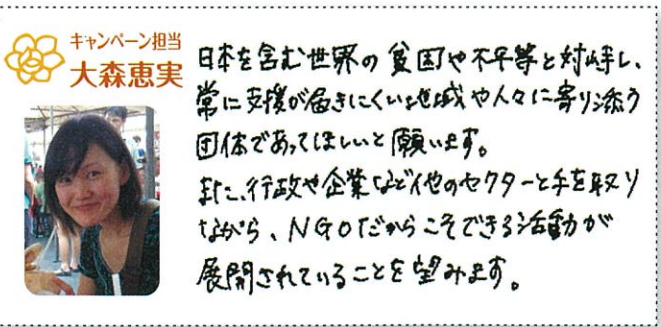 キャンペーン担当
大森恵実
日本を含む世界の貧困や不平等と対峙し、
常に支援が届きにくい地域や人々に寄り添う
団体であってほしいと願います。
また、行政や企業など他のセクターと手を取り
ながら、NGOだからこそできる活動が
展開されていることを望みます。